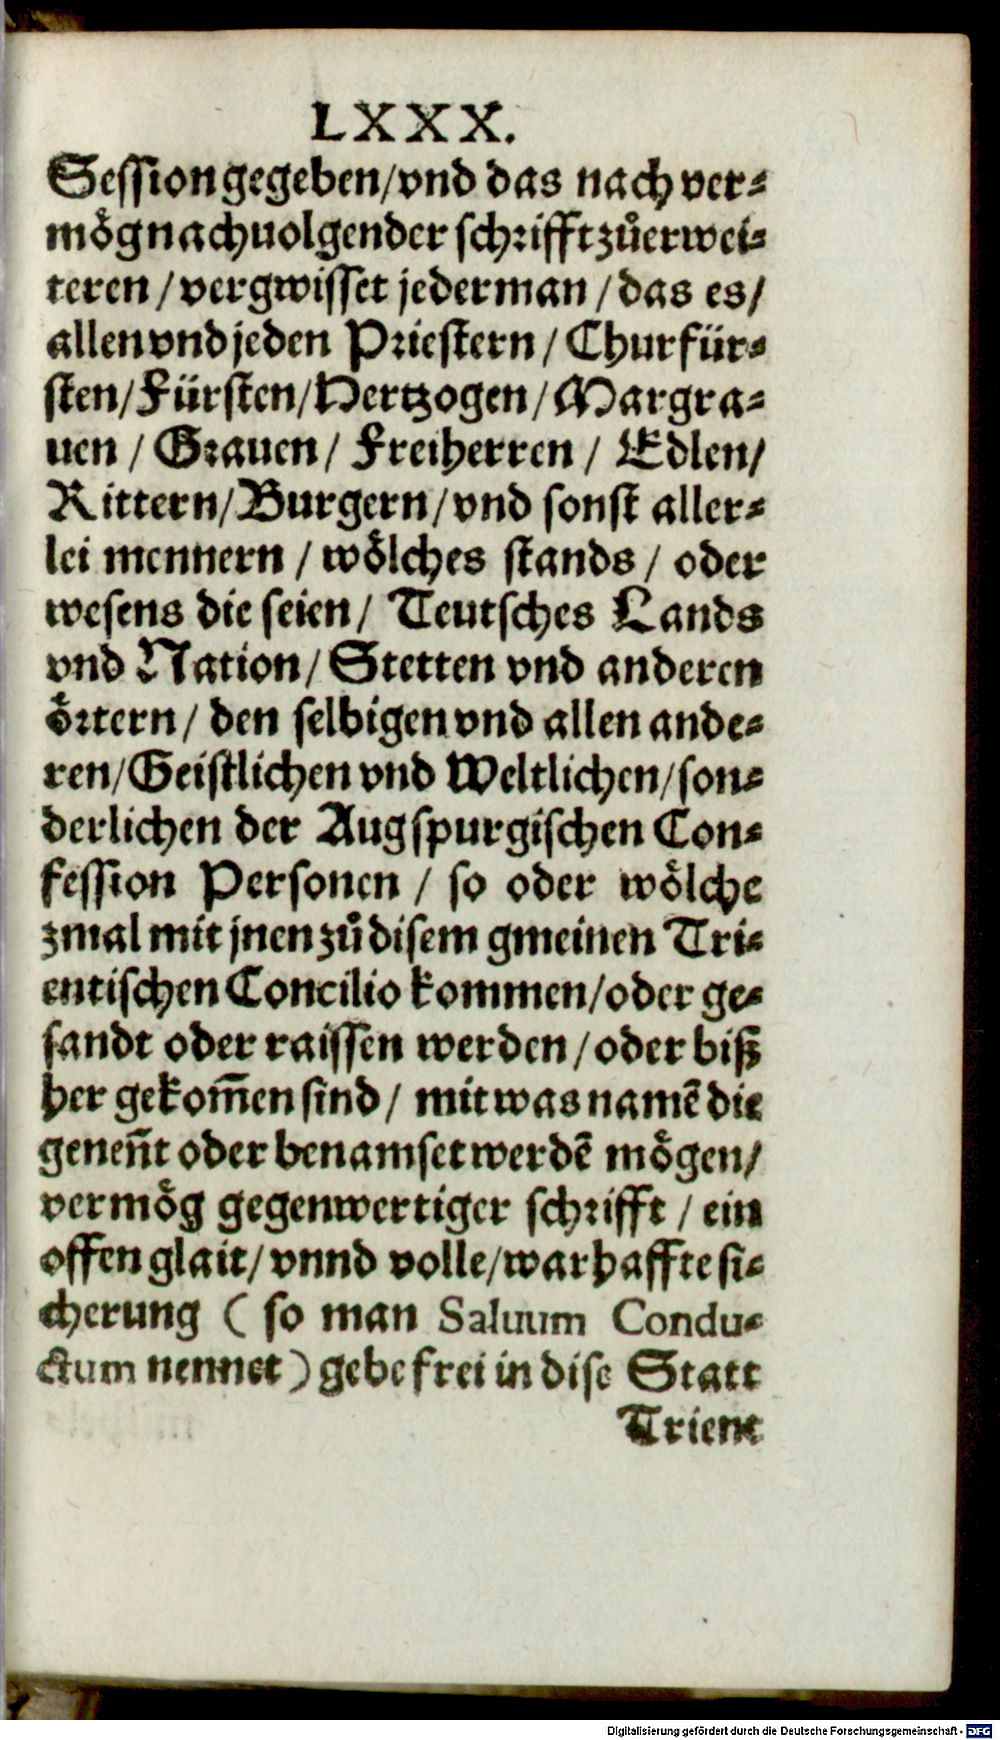 LXXX.
Session gegeben/vnd das nach ver⸗
mögnachuolgender schrifft zůerwei⸗
teren / vergwisset jederman / das es/
allen vnd jeden Priestern / Churfür⸗
sten/Fürsten/Hertzogen / Margra⸗
uen / Grauen / Freiherren / Edlen/
Rittern/Burgern/vnd sonst aller⸗
lei mennern / wölches stands / oder
wesens die seien/ Teutsches Lands
vnd Nation/ Stetten vnd anderen
örtern/ den selbigen vnd allen ande⸗
ren/Geistlichen vnd Weltlichen/son⸗
derlichen der Augspurgischen Con⸗
fession Personen / so oder wölche
zmal mit jnen zů disem gmeinen Tri⸗
entischen Concilio kommen/oder ge⸗
sandt oder raissen werden/oder biß
her gekom̄en sind/ mit was namē die
genen̄t oder benamset werdē mögen/
vermög gegenwertiger schrifft / ein
offen glait/ vnnd volle/warhaffte si⸗
cherung ( so man Saluum Condu⸗
ctum nennet) gebe frei in dise Statt
Trient
Digitalisierung gefördert durch die Deutsche Forschungsgemeinschaft - DFG